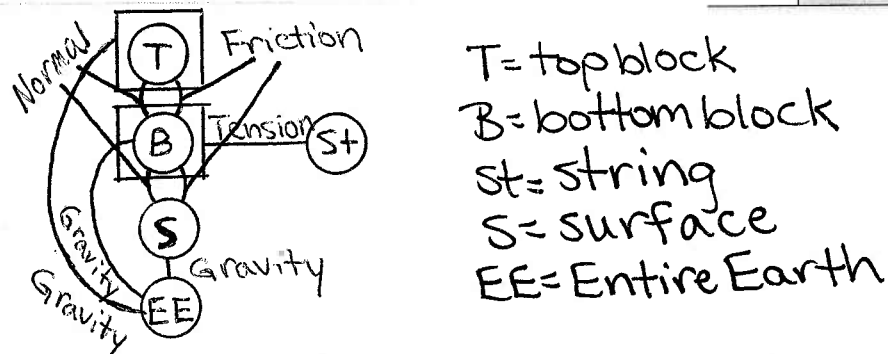 T
Friction
Normal
B
Tension
St
S
Gravity
Gravity
Gravity
EE
T=top block
B=bottom block
St=string
S=surface
EE=Entire Earth